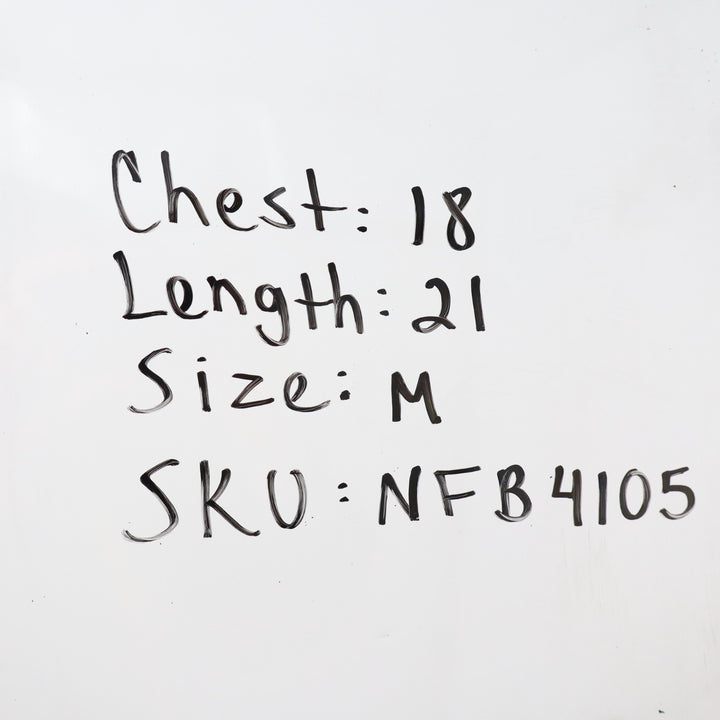 Chest: 18
Length: 21
Size: M
SKU: NFB4105